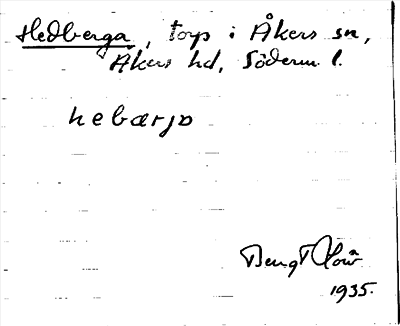 Hedberga, torp i Åkers sn,
Åkers hd, Söderm. l.
hebærjɒ
Bengt
1935.